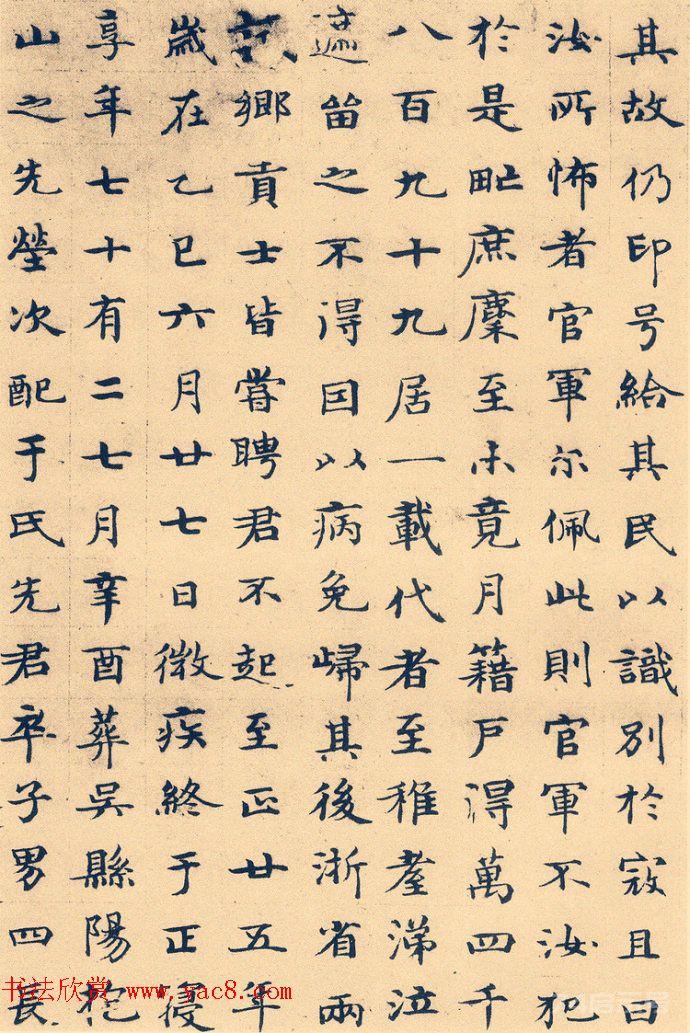 其故仍印号給其民以識別於宼且曰
汝所怖者官軍尔佩此則官軍不汝犯
於是甿庶麇至未竟月籍戶得萬四千
八百九十九居一載代者至稚耋涕泣
遮留之不得因以病免歸其後浙省兩
試鄉貢士皆嘗聘君不起至正廿五年
歲在乙巳六月廿七日微疾終于正寢
享年七十有二七月辛酉葬吳縣陽抱
山之先塋次配于氏先君卒子男四長
书法欣赏 www.yac8.com